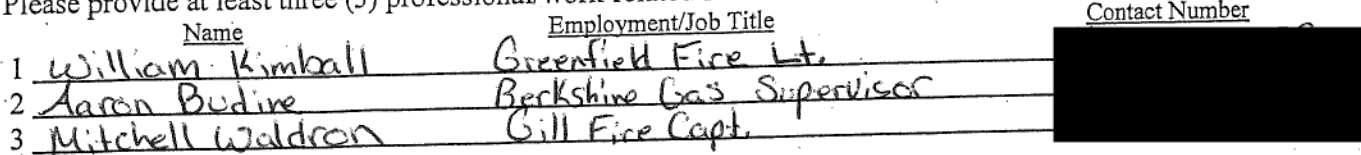 Please provide at least three (3) professional work related
Name Employment/Job Title Contact Number
1 William Kimball Greenfield Fire Lt.
2 Aaron Budine Berkshire Gas Supervisor
3 Mitchell Waldron Gill Fire Capt.